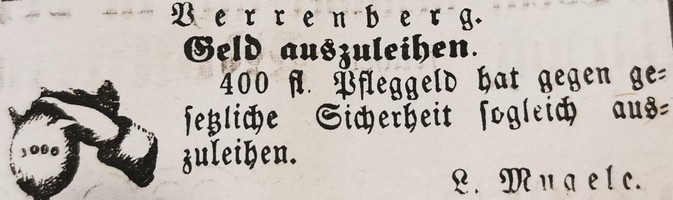 Verrenberg.
Geld auszuleihen.
400 fl. Pfleggeld hat gegen ge=
setzliche Sicherheit sogleich aus=
zuleihen.
L. Mugele.
1000